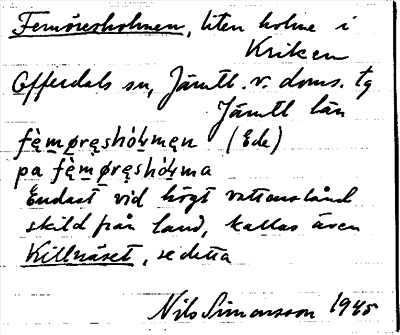 Femöresholmen, liten holme i
Kriken
Offerdals sn, Jämtl. v. doms. tg
Jämtl län
fè̱mø̱ręshólmęn (Ede)
pa fè̱mø̱ręshólma
Endast vid högt vattenstånd
skild från land, kallas även
Killnäset, se detta
Nils Simonsson 1945